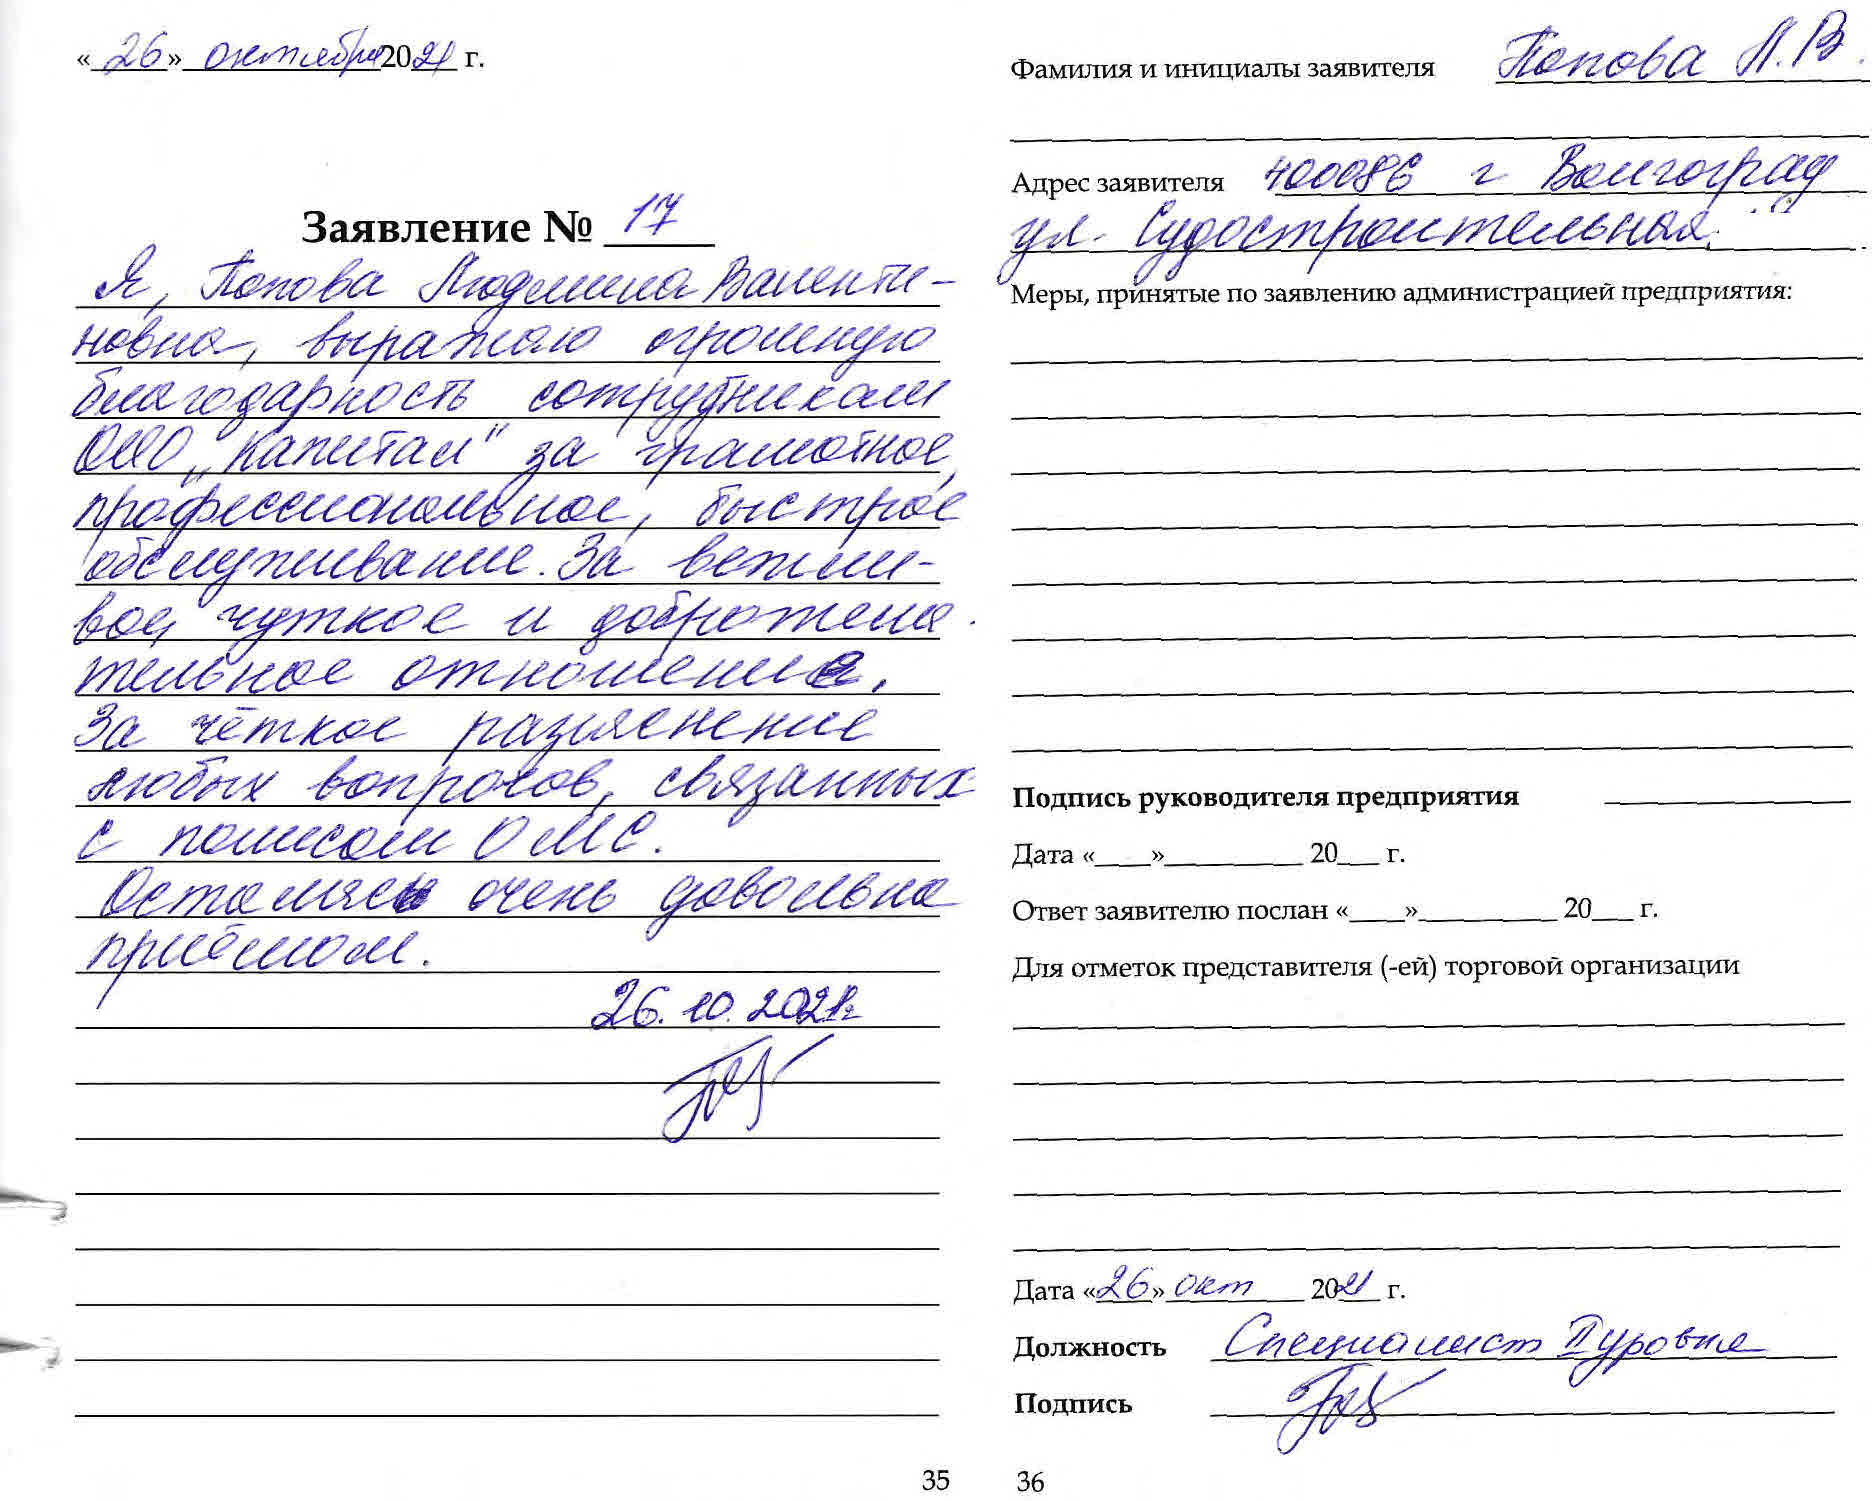 «26» октября 2021 г.
Заявление № 17
Я, Попова Людмила Валенти-
новна, выражаю огромную
благодарность сотрудникам
ООО „Капитал" за грамотное,
профессиональное, быстрое
обслуживание. За вежли-
вое, чуткое и доброжела-
тельное отношение.
За чёткое разъяснение
любых вопросов, связанных
с полисом ОМС.
Осталась очень довольна
приёмом.
26.10.2021г
35
Фамилия и инициалы заявителя Попова Л.В.
Адрес заявителя 400086 г Волгоград
ул. Судостроительная.
Меры, принятые по заявлению администрацией предприятия:
Подпись руководителя предприятия
Дата «____»__________ 20___ г.
Ответ заявителю послан «____»__________ 20___ г.
Для отметок представителя (-ей) торговой организации
Дата «26» окт 2021 г.
Должность Специалист II уровня
Подпись
36